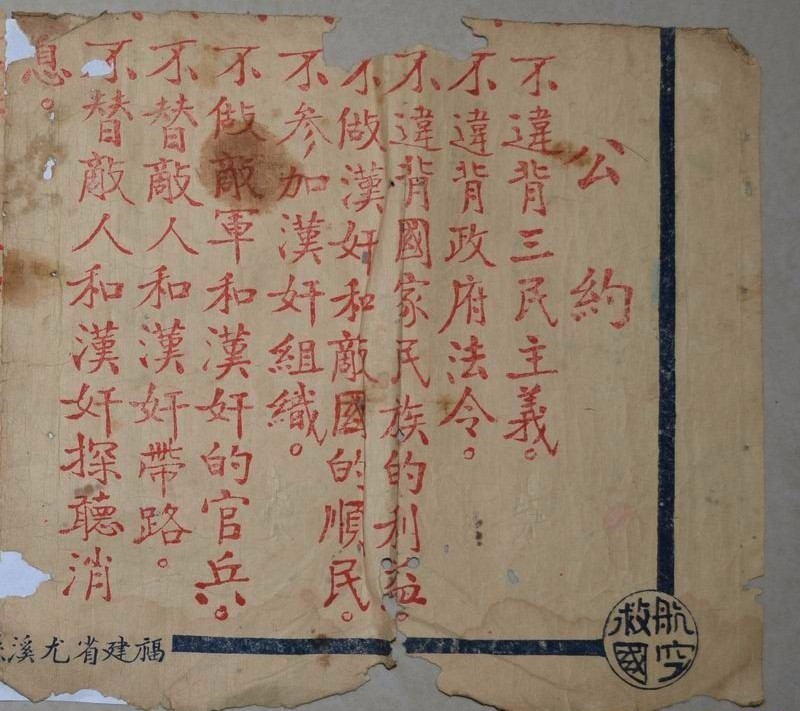 公約
不違背三民主義。
不違背政府法令。
不違背國家民族的利益。
不做漢奸和敵國的順民。
不參加漢奸組織。
不做敵軍和漢奸的官兵。
不替敵人和漢奸帶路。
不替敵人和漢奸探聽消
息。
航空救國
福建省尤溪